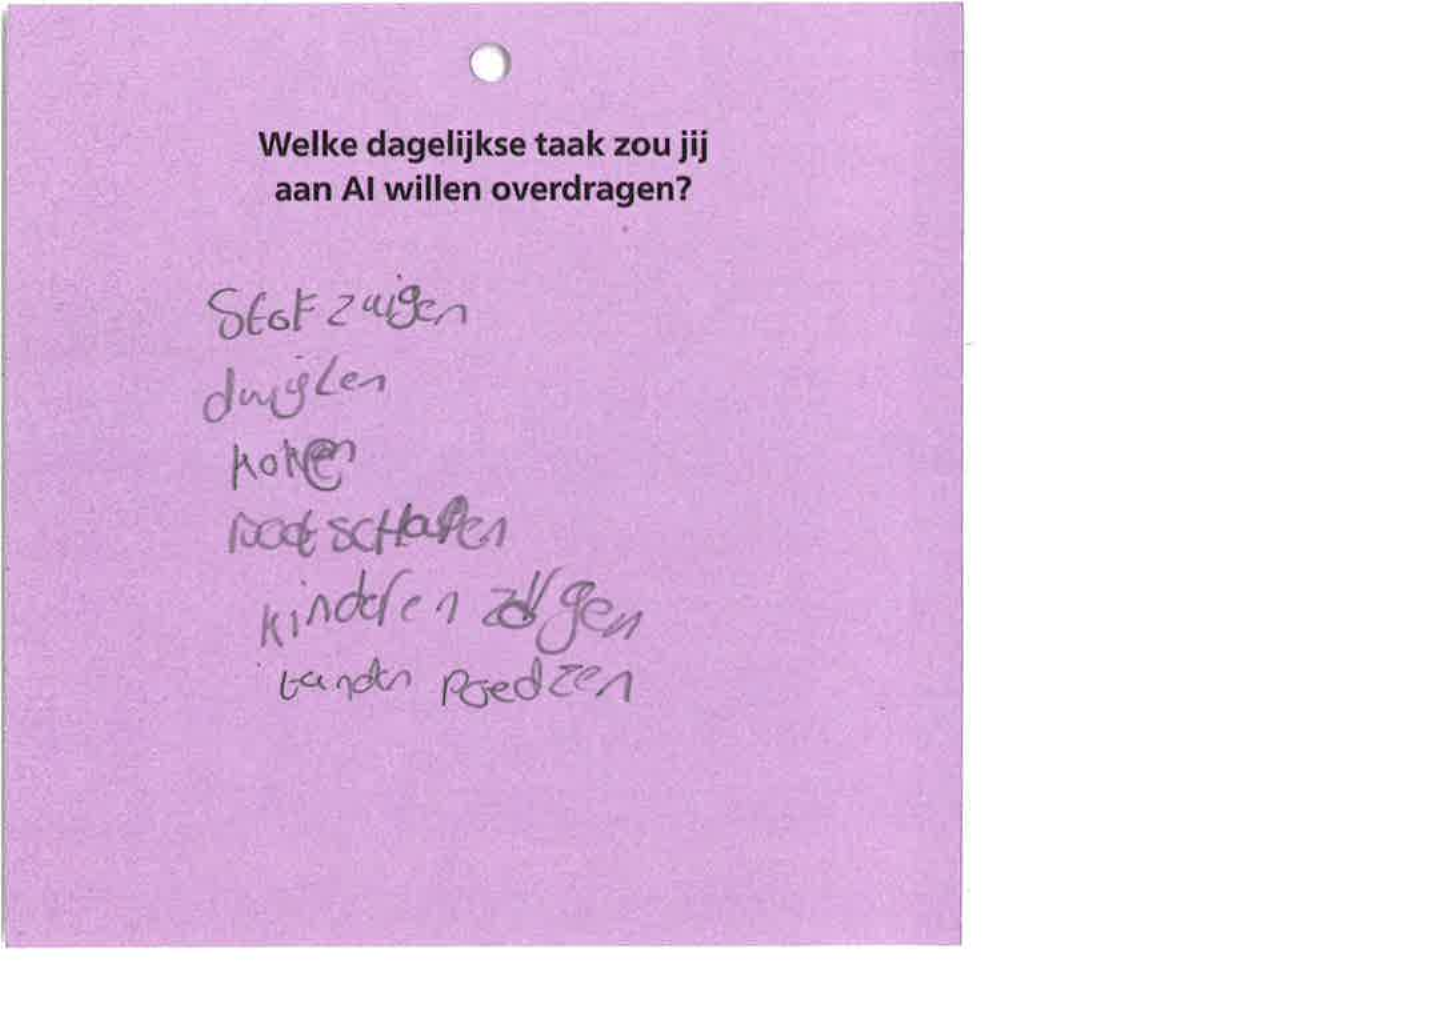 Welke dagelijkse taak zou jij
aan AI willen overdragen?
Stof zuigen
dwijlen
koken
kinderen zorgen
tanden poedzen